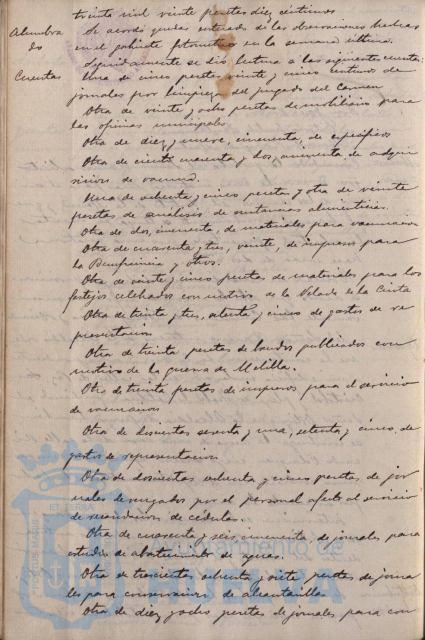 treinta mil veinte pesetas diez céntimos.
Alumbra
do
De acordó quedar enterado de las observaciones hechas
en el gabinete fotométrico en la semana última.
Cuentas
Seguidamente se dió lectura a las siguientes cuentas:
Una de cinco pesetas veinte y cinco céntimos de
jornales por limpieza del juzgado del Carmen
Otra de veinte y ocho pesetas de mobiliario para
las oficinas municipales.
Otra de diez y nueve, cincuenta, de específicos
Otra de ciento cuarenta y dos, cincuenta de adqui
sición de vacuna.
Una de ochenta y cinco pesetas y otra de veinte
pesetas de análisis de sustancias alimenticias.
Otra de dos, cincuenta, de materiales para vacunación
Otra de cuarenta y tres, veinte, de impresos para
la Beneficencia y otros.
Otra de veinte y cinco pesetas de materiales para los
festejos celebrados con motivo de la Velada de la Cinta
Otra de treinta y tres, setenta y cinco de gastos de re
presentación
Otra de treinta pesetas de bandos publicados con
motivo de la guerra de Melilla.
Otra de treinta pesetas de impresos para el servicio
de vacunación
Otra de doscientos sesenta y una, setenta y cinco, de
gastos de representación
Otra de doscientas ochenta y cinco pesetas de jor
nales devengados por el personal afecto al servicio
de recaudación de cédulas.
Otra de cuarenta y seis, cincuenta, de jornales para
estudios de abastecimiento de aguas.
Otra de trescientas ochenta y siete pesetas de jorna
les para conservación de alcantarillas
Otra de diez y ocho pesetas de jornales para con
Ayuntamiento de
HUELVA